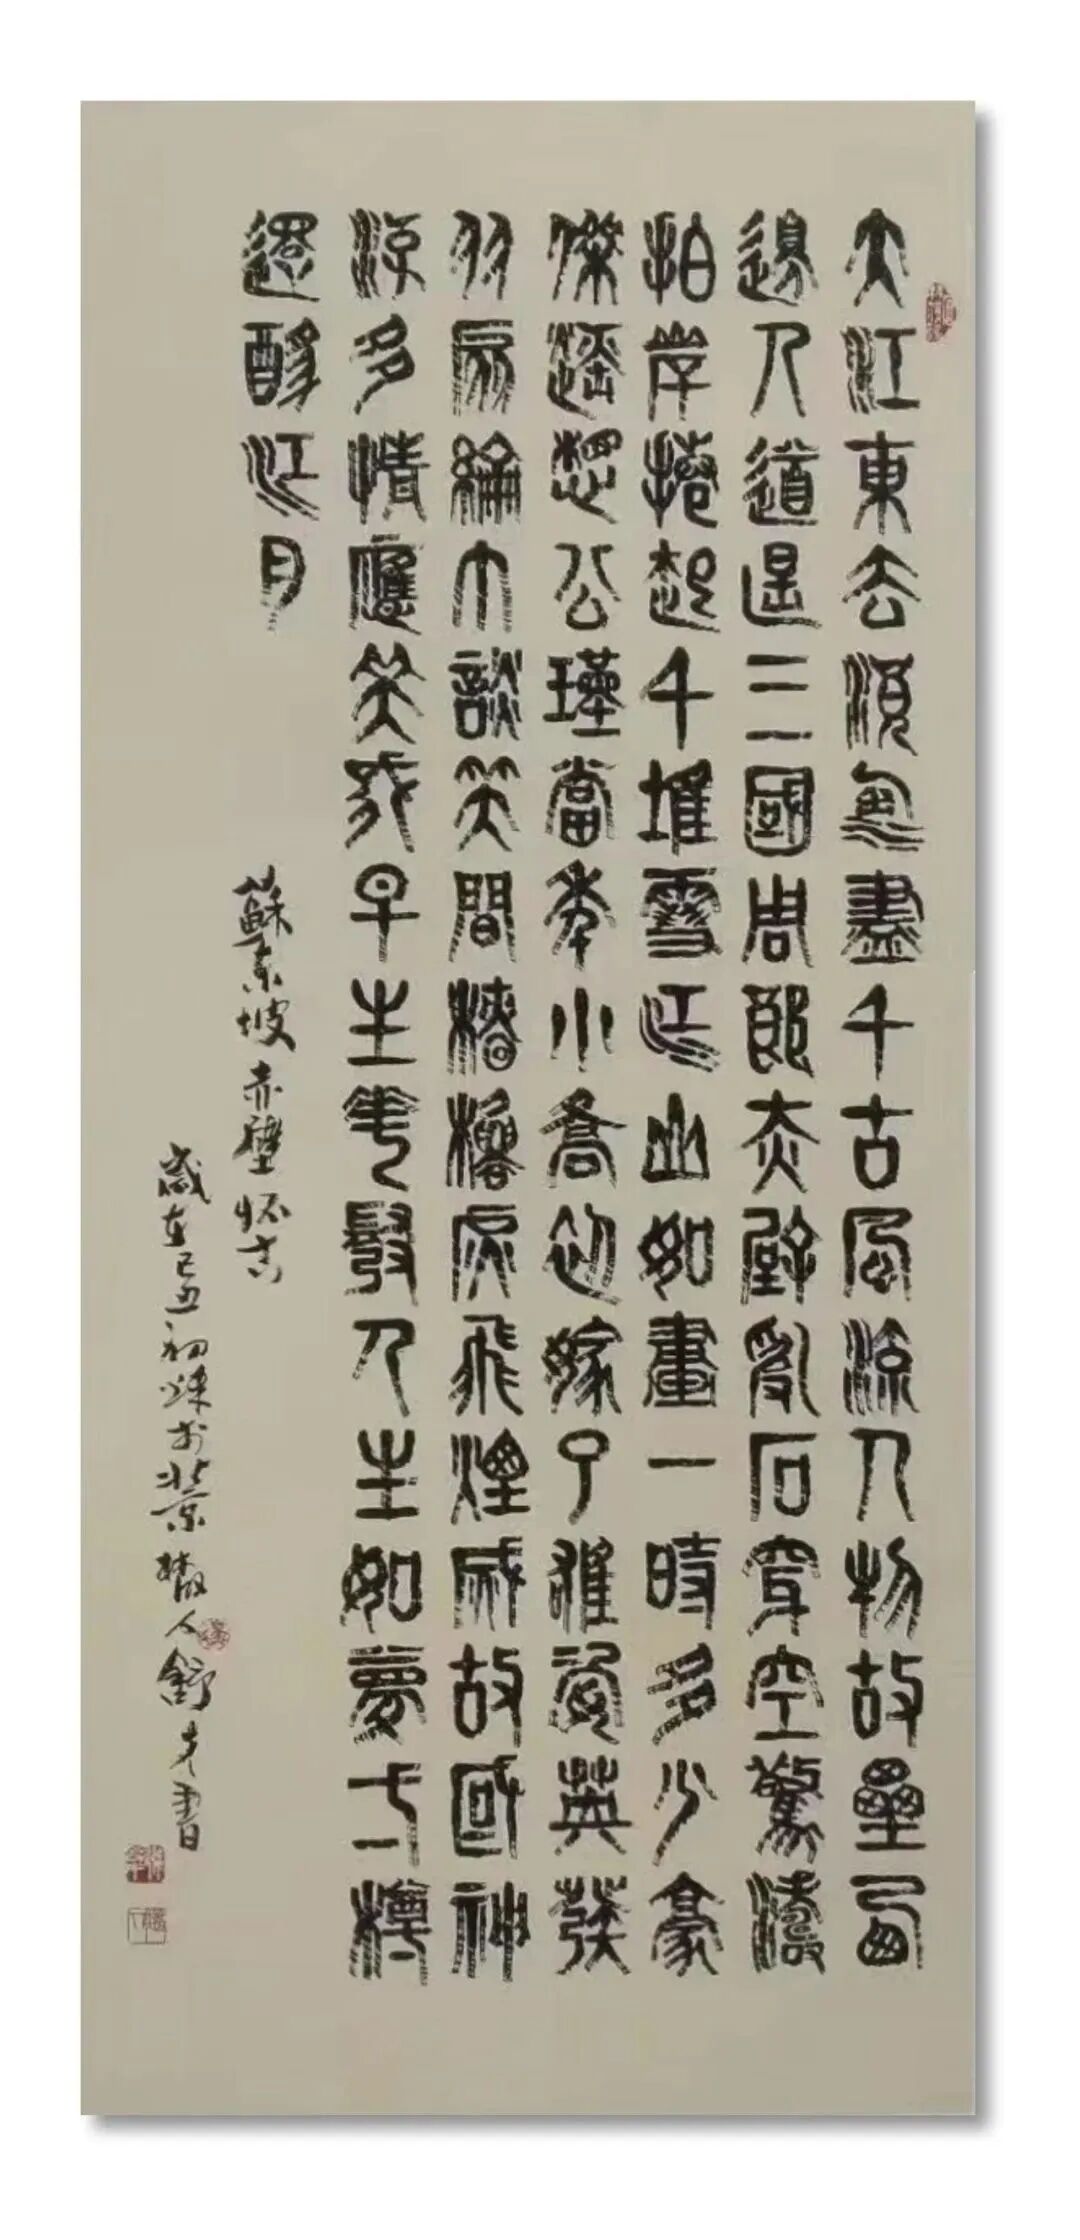 大江東去浪淘盡千古風流人物故壘西
邊人道是三國周郎赤壁亂石穿空驚濤
拍岸捲起千堆雪江山如畫一時多少豪
傑遥想公瑾當年小喬初嫁了雄姿英發
羽扇綸巾談笑間檣櫓灰飛煙滅故國神
游多情應笑我早生華髮人生如夢一樽
還酹江月
蘇東坡赤壁怀古
歲在己丑初秋於北京人舒才書